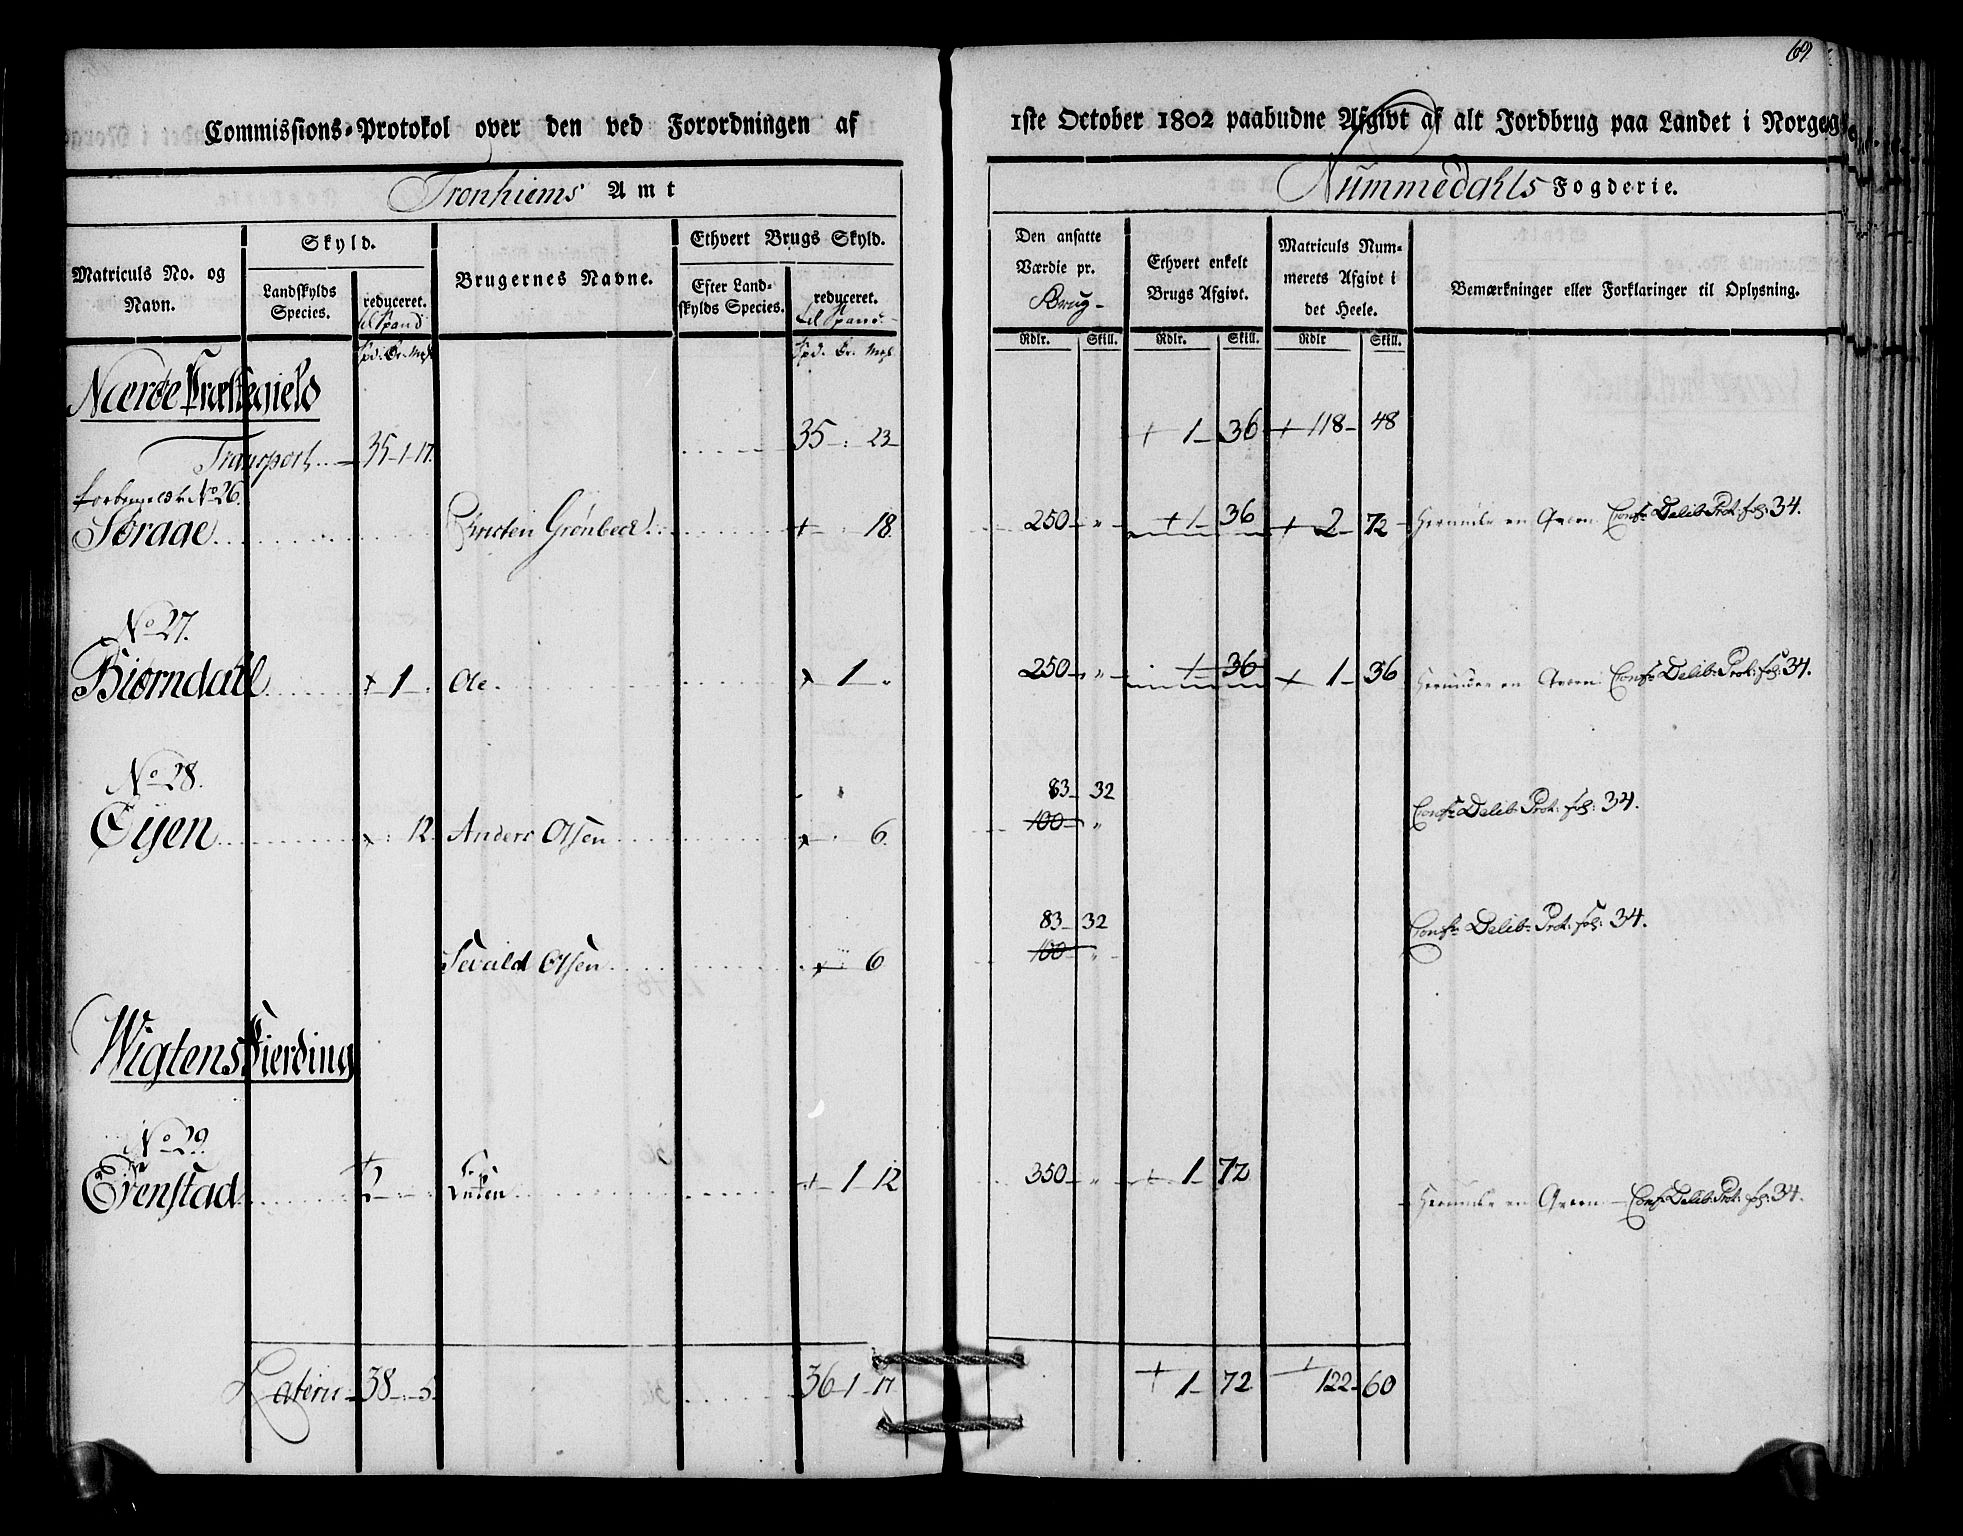 69
Commissions-Protokol over den ved Forordningen af 1ste October 1802 paabudne Afgivt af alt Jordbrug paa Landet i Norge
Tronhiems Amt
Nummedahls Fogderie.
Matriculs No. og Navn.
Skyld.
Landskylds Species.
reduceret.
til Spand
Brugernes Navne.
Ethvert Brugs Skyld.
Efter Landskylds Species.
reduceret.
til Spand
Den ansatte Værdie pr.
Brug
Ethvert enkelt Brugs Afgivt.
Matriculs Nummerets Afgivt i det Heele.
Bemærkninger eller Forklaringer til Oplysning.
Spd. Ør. Mkl. Spd. Ør. Mkl. Rdlr. Skill. Rdlr. Skill. Rdlr Skill.
Nærøe Præstegield
Transport 35-1-17. 35-:23 + 1-36 + 118-48
forbemeldte No 26.
Sørage Christen Grønbeck +-:18. 250-" +1-36 + 2-72 Herunder en Qvern Confr Delib: Prot: fol: 34.
No 27.
Biørndahl + 1-. Ole. + 1-" 250-" 1-36 + 1-36 Herunder en Qvern Confr Delib: Prot: fol: 34.
No 28.
83-32
Øijen + : 12. Anders Olsen + : 6. 100-" Confr Delib: Prot: fol: 34.
83-32
Sevald Olsen + 6 100-" Confr Delib: Prot: fol: 34.
Wigtens Fierding
No 29.
Evenstad +2-:- + 1-12 350-" + 1-72 Herunder en Qvern - Confr Delib: Prot: fol: 34.
Lateru 38-:5 36-1-17 + 1-72 + 122-60